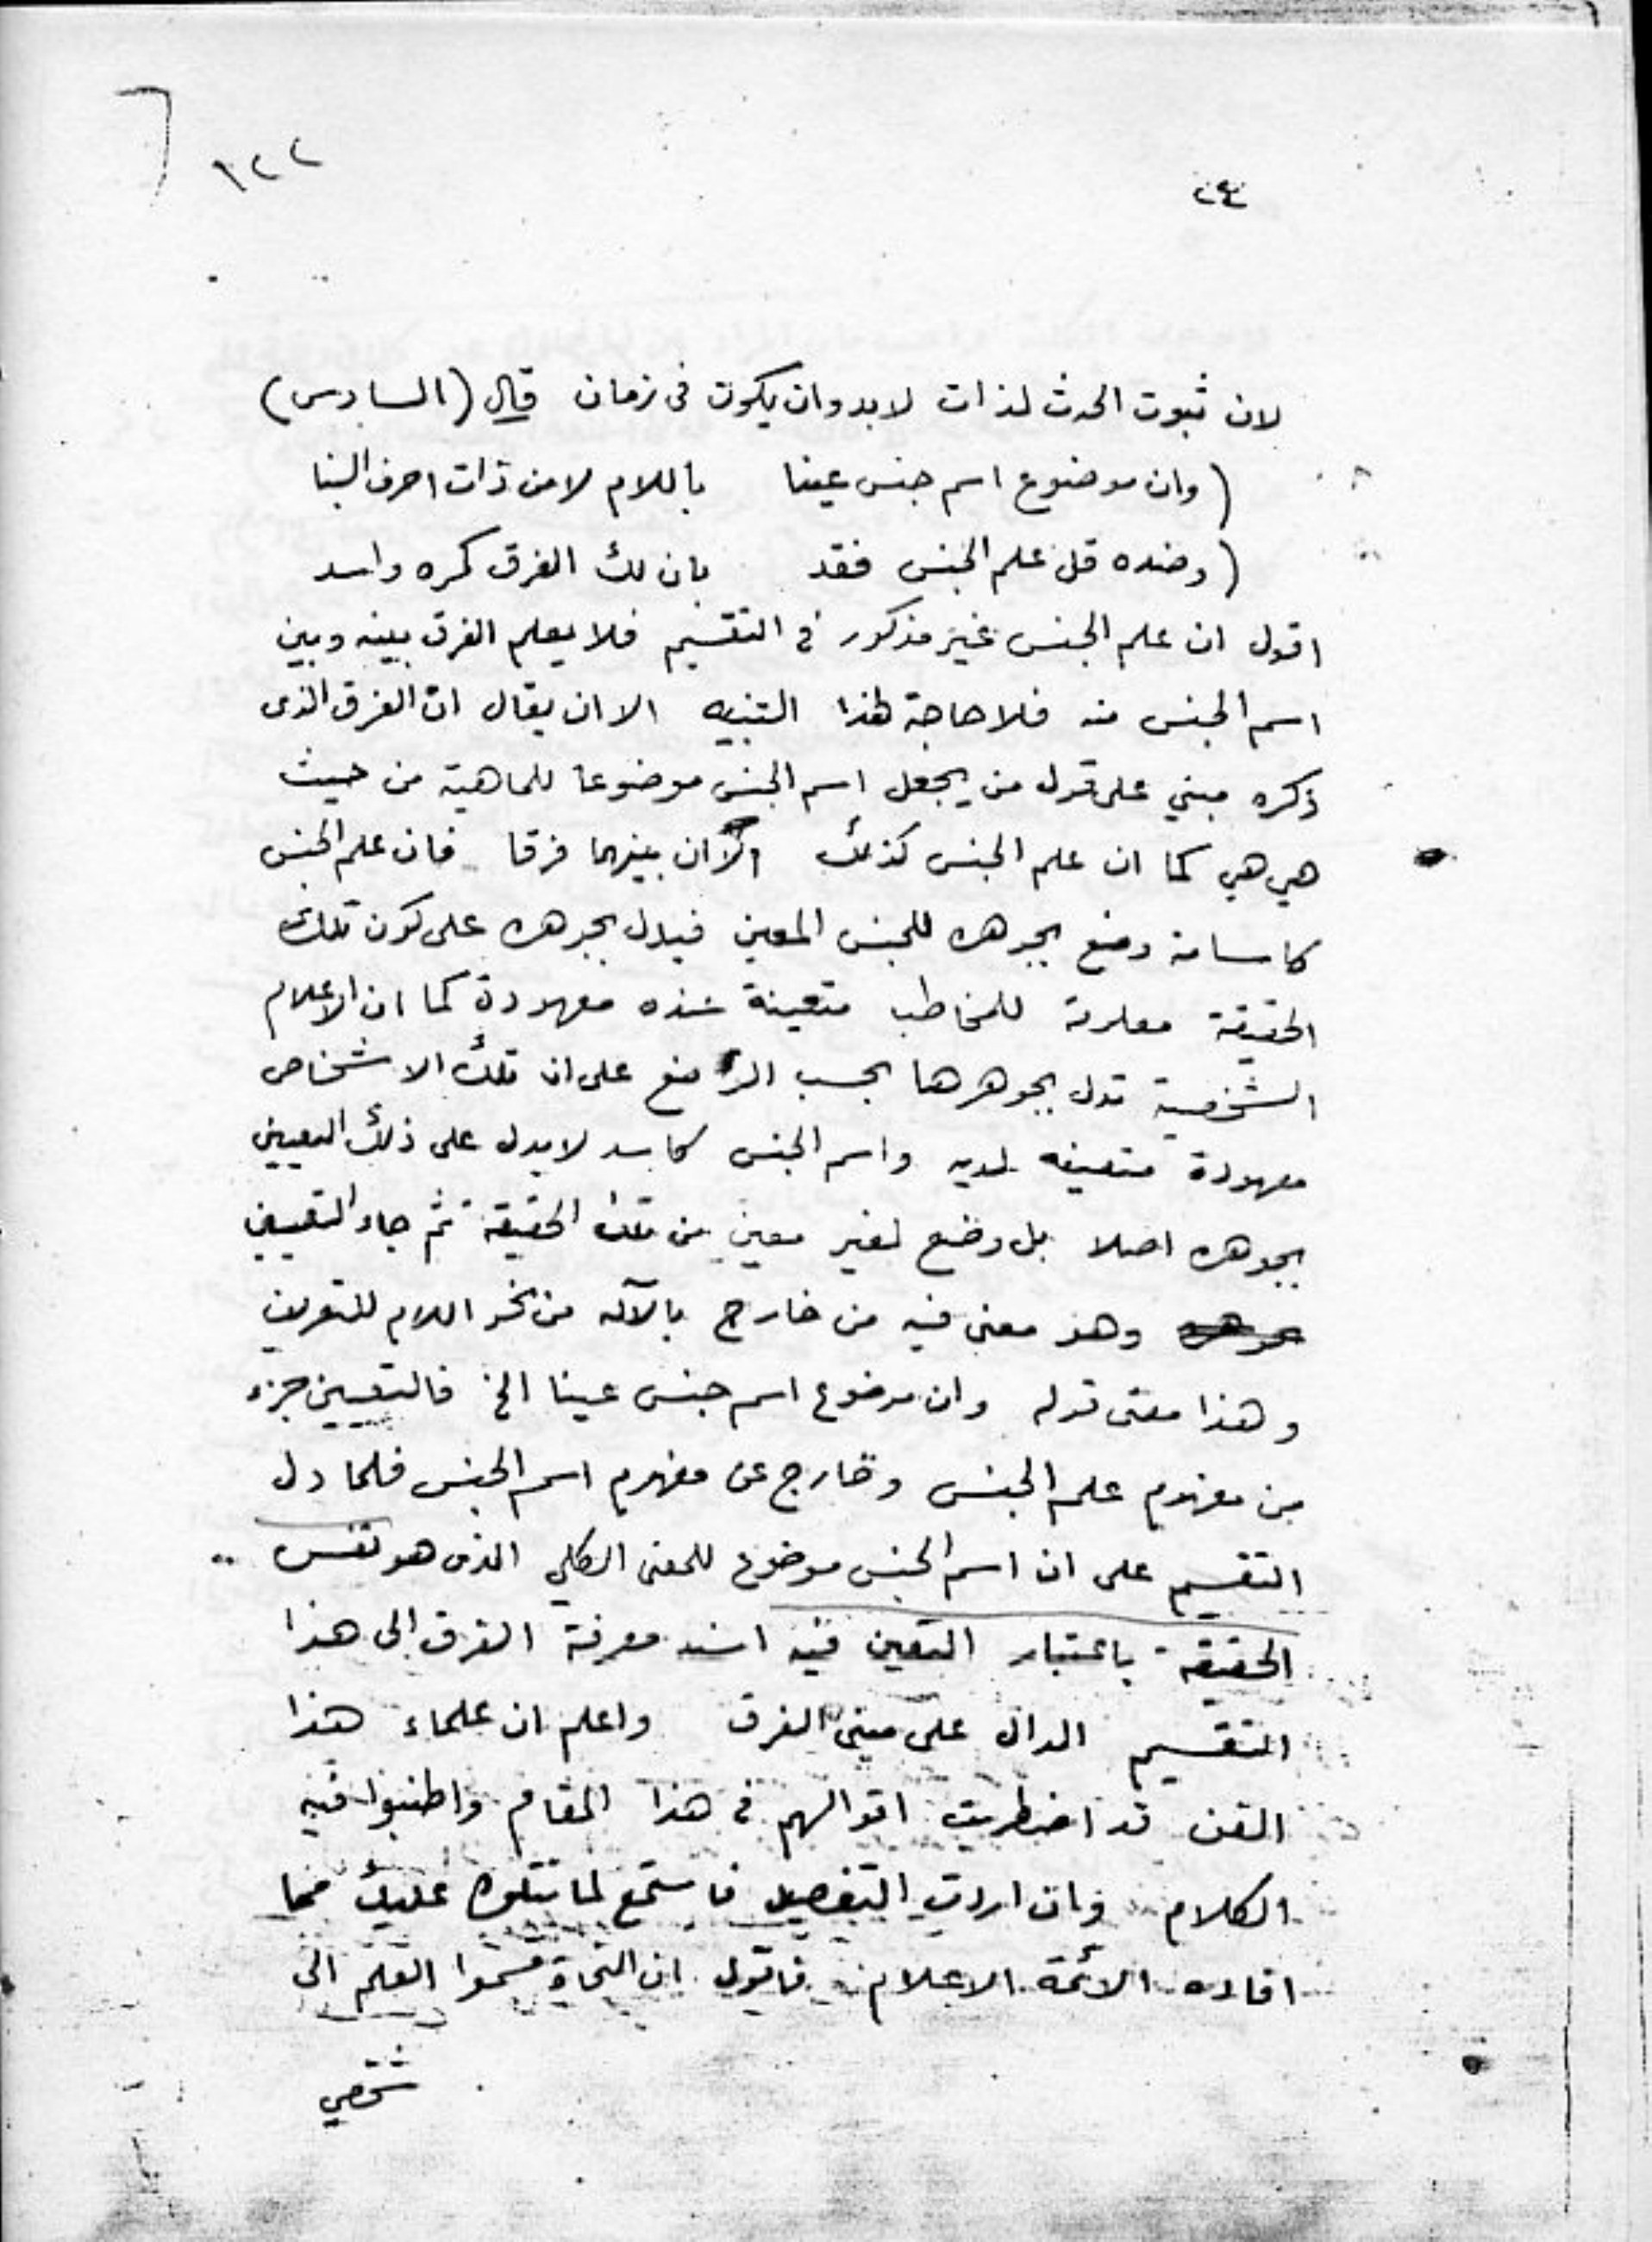 ١٢٢
٢٤
لان ثبوت الحدث لذات لابد وان يكون فى زمان قال (السادس)
(وان موضوع اسم جنس عينا باللام لا من ذات احرف البنا
(وضده قل علم الجنس فقد بان لك الفرق كمره واسد
اقول ان علم الجنس غير مذكور في التقسيم فلا يعلم الفرق بينه وبين
اسم الجنس منه فلا حاجة لهذا التنبيه الا ان يقال ان الفرق الذى
ذكره مبني على قول من يجعل اسم الجنس موضوعا للماهية من حيث
هي هي كما ان علم الجنس كذلك الا ان بينهما فرقا فان علم الجنس
كاسامة وضع بجوهره للجنس المعين فيدل بجوهره على كون تلك
الحقيقة معلومة للمخاطب متعينة عنده معهودة كما ان الاعلام
الشخصية تدل بجوهرها بحسب الوضع على ان تلك الاشخاص
معهودة متعينه لديه واسم الجنس كاسد لا يدل على ذلك التعيين
بجوهره اصلا بل وضع لغير معين من تلك الحقيقة ثم جاء التعيين
وهو معنى فيه من خارج بالآله من نحو اللام للتعريف
وهذا معنى قوله وان موضوع اسم جنس عينا الخ فالتعيين جزء
من مفهوم علم الجنس وخارج عن مفهوم اسم الجنس فلما دل
التقسيم على ان اسم الجنس موضوع للمعنى الكلي الذى هو نفس
الحقيقة باعتبار التعين فيه اسند معرفة الفرق الى هذا
التقسيم الدال على مبنى الفرق واعلم ان علماء هذا
الفن قد اضطربت اقوالهم في هذا المقام واطنبوا فيه
الكلام وان اردت التفصيل فاستمع لما نتلوه عليك مما
افاده الائمة الاعلام فاقول ان النحاة قسموا العلم الى
شخصي